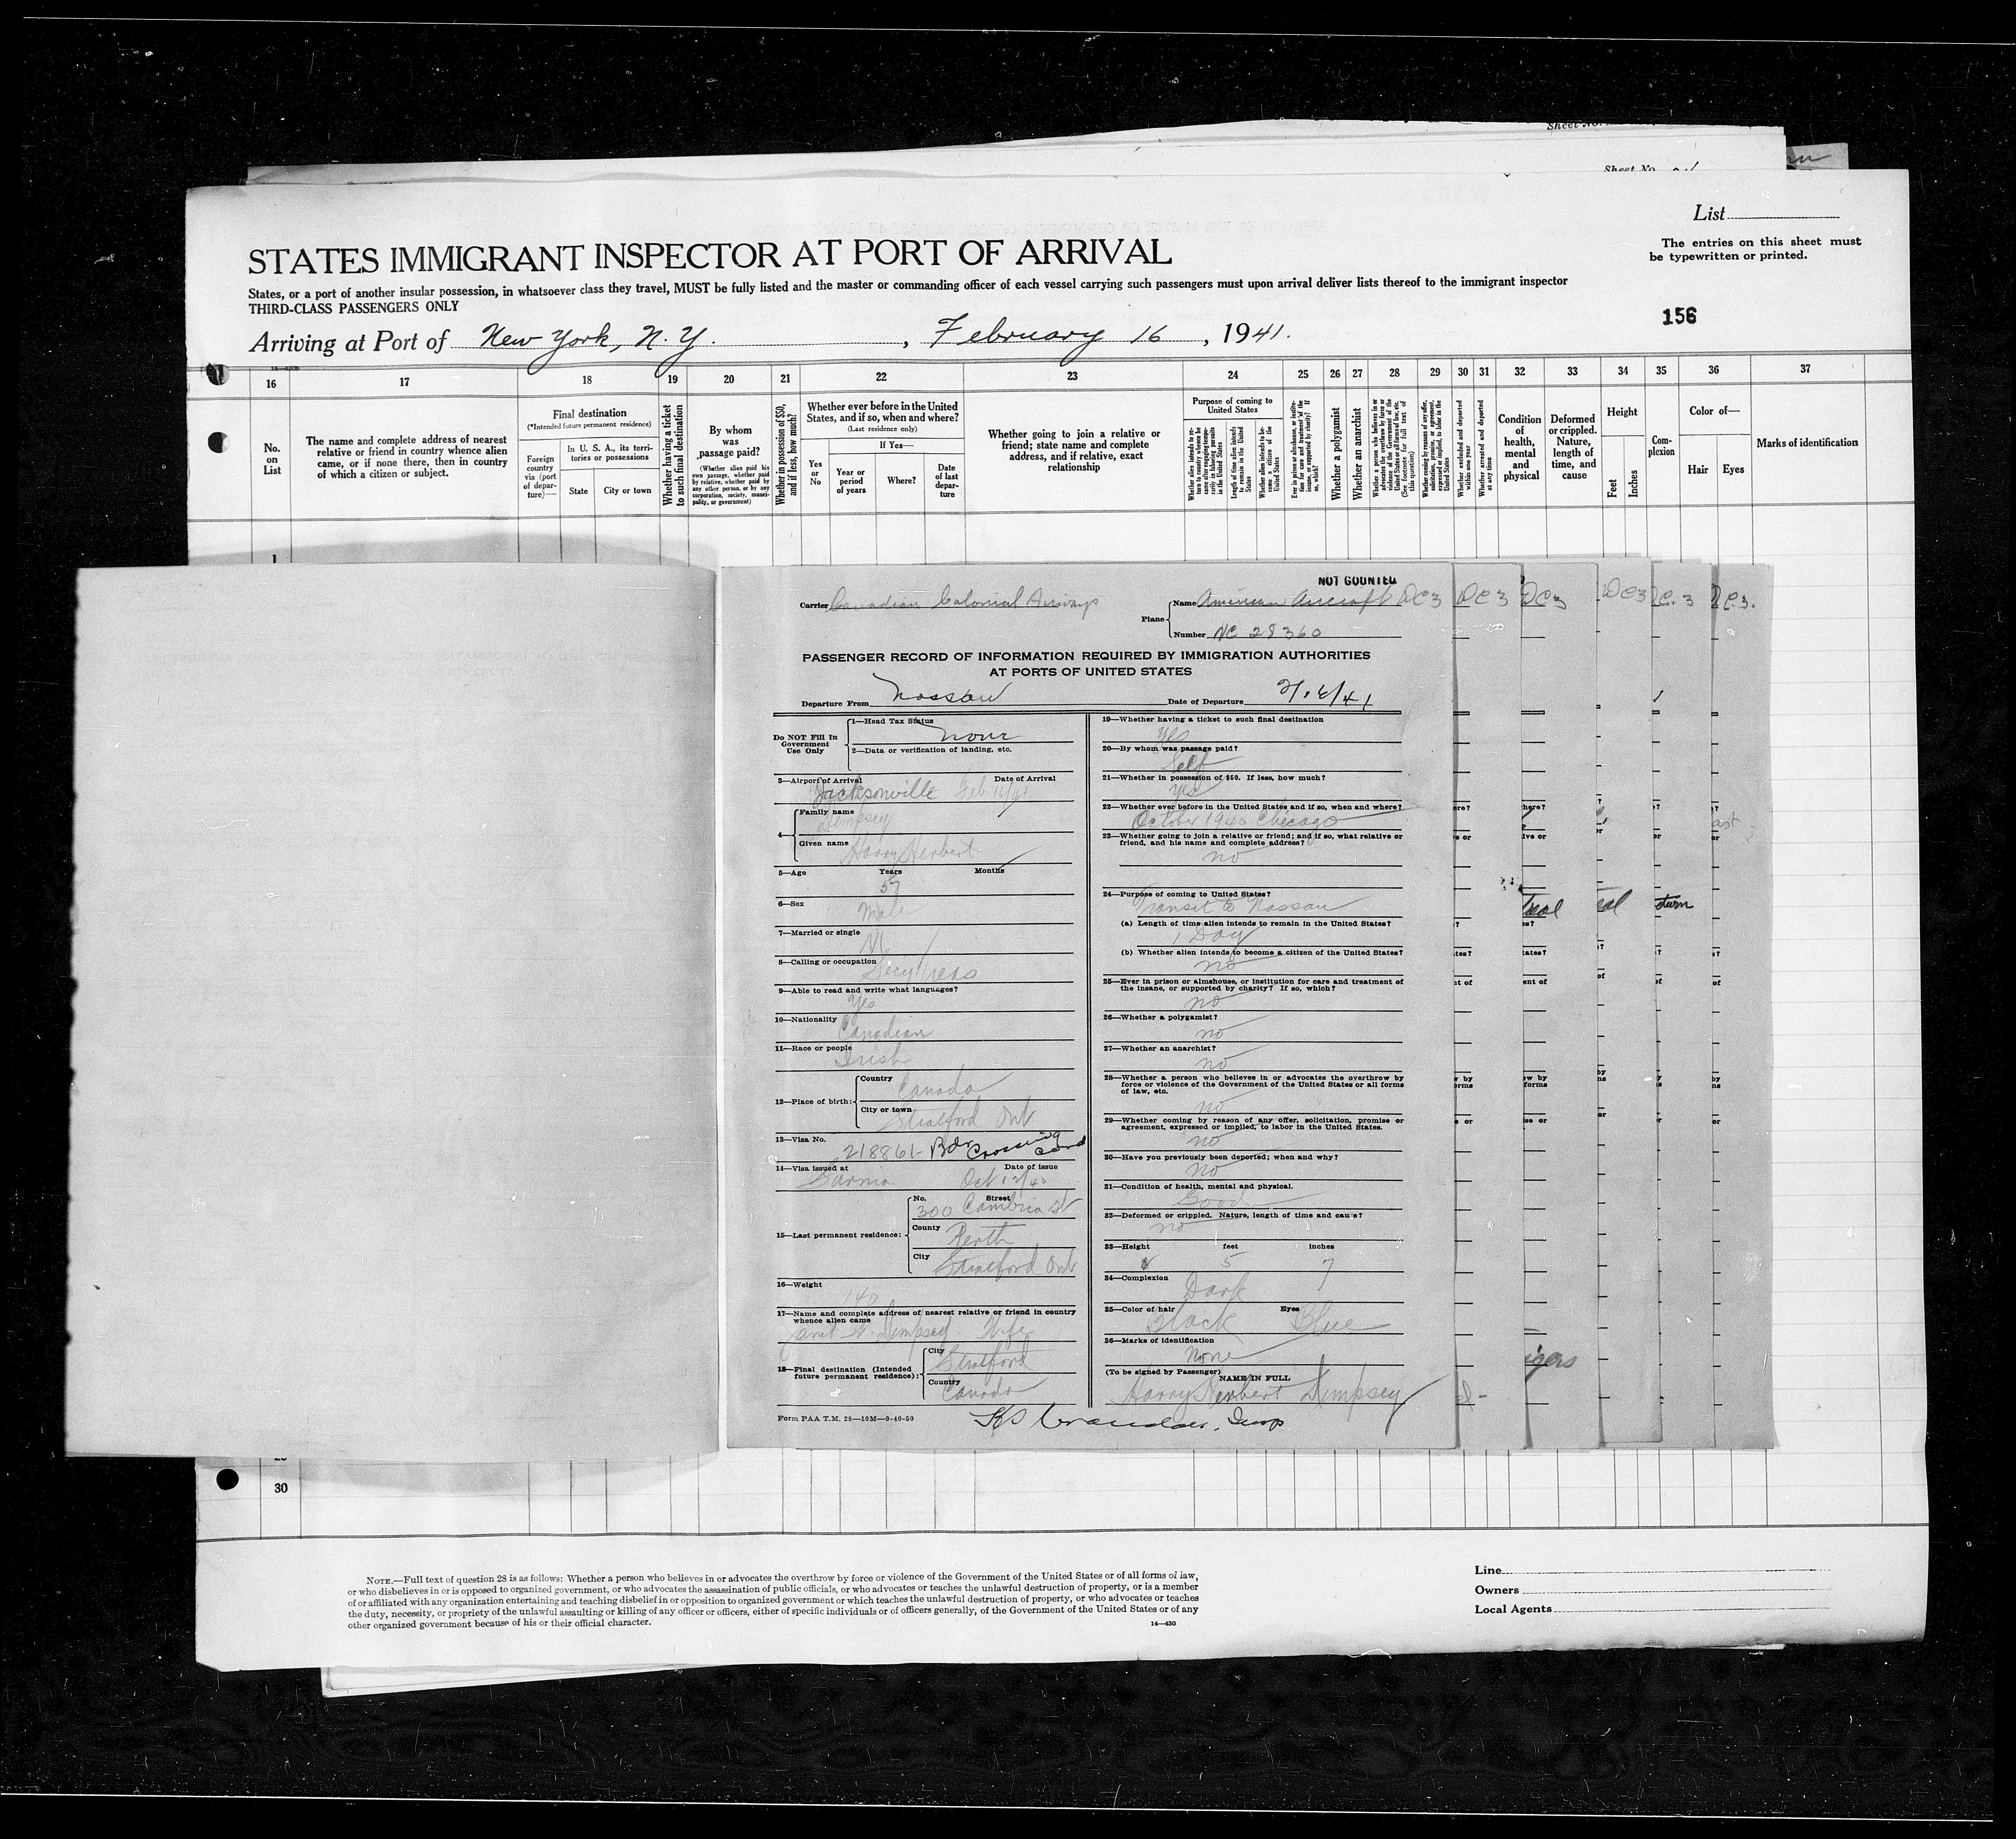 Sheet No.
Sheet No.
List
The entries on this sheet must
be typewritten or printed.
STATES IMMIGRANT INSPECTOR AT PORT OF ARRIVAL
States, or a port of another insular possession, in whatsoever class they travel, MUST be fully listed and the master or commanding officer of each vessel carrying such passengers must upon arrival deliver lists thereof to the immigrant inspector
THIRD-CLASS PASSENGERS ONLY
156
Arriving at Port of New York, N. Y. , February 16 , 1941.
16 17 18 19 20 21 22 23 24 25 26 27 28 29 30 31 32 33 34 35 36 37
No. on List
The name and complete address of nearest relative or friend in country whence alien came, or if none there, then in country of which a citizen or subject.
Final destination
(*Intended future permanent residence)
Foreign country via (port of departure)—
In U. S. A., its territories or possessions
State
City or town
Whether having a ticket to such final destination
By whom was passage paid?
(Whether alien paid his own passage, whether paid by relative, whether paid by any other person, or by any corporation, society, municipality, or government)
Whether in possession of $50, and if less, how much?
Whether ever before in the United States, and if so, when and where?
(Last residence only)
Yes or No
If Yes—
Year or period of years
Where?
Date of last departure
Whether going to join a relative or friend; state name and complete address, and if relative, exact relationship
Purpose of coming to United States
Length of time alien intends to remain in the United States
Whether alien intends to become a citizen of the United States
Whether a polygamist
Whether an anarchist
Whether excluded and deported within one year
Whether arrested and deported at any time
Condition of health, mental and physical
Deformed or crippled. Nature, length of time, and cause
Height
Feet
Inches
Complexion
Color of—
Hair
Eyes
Marks of identification
1
NOT COUNTED
Carrier Canadian Colonial Airways
Plane
Name American Aircraft DC3
DC3
DC3
DC3
Number NC 28360
PASSENGER RECORD OF INFORMATION REQUIRED BY IMMIGRATION AUTHORITIES
AT PORTS OF UNITED STATES
Departure From Nassau Date of Departure
Do NOT Fill In Government Use Only
1—Head Tax Status
None
2—Data or verification of landing, etc.
3—Airport of Arrival Date of Arrival
Jacksonville Feb
4—
Family name
Dempsey
Given name
Harry Herbert
5—Age Years Months
57
6—Sex
Male
7—Married or single
M
8—Calling or occupation
Secy Treas
9—Able to read and write what languages?
Yes
10—Nationality
Canadian
11—Race or people
Irish
12—Place of birth:
Country
Canada
City or town
Stratford Ont
13—Visa No.
218861- Bdr Crossing Card
14—Visa issued at Date of issue
Sarnia Oct 12/40
15—Last permanent residence:
No. Street
300 Cambria St
County
Perth
City
Stratford Ont
16—Weight
140
17—Name and complete address of nearest relative or friend in country whence alien came
Dempsey Wife
18—Final destination (Intended future permanent residence):
City
Stratford
Country
Canada
Form PAA T.M. 28—10M—9-40-50
19—Whether having a ticket to such final destination
Yes
20—By whom was passage paid?
Self
21—Whether in possession of $50. If less, how much?
Yes
22—Whether ever before in the United States and if so, when and where?
October 1940 Chicago
23—Whether going to join a relative or friend; and if so, what relative or friend, and his name and complete address?
no
24—Purpose of coming to United States?
Transit to Nassau
(a) Length of time alien intends to remain in the United States?
1 Day
(b) Whether alien intends to become a citizen of the United States?
no
25—Ever in prison or almshouse, or institution for care and treatment of the insane, or supported by charity? If so, which?
no
26—Whether a polygamist?
no
27—Whether an anarchist?
no
28—Whether a person who believes in or advocates the overthrow by force or violence of the Government of the United States or all forms of law, etc.
no
29—Whether coming by reason of any offer, solicitation, promise or agreement, expressed or implied, to labor in the United States.
no
30—Have you previously been deported; when and why?
no
31—Condition of health, mental and physical.
Good
32—Deformed or crippled. Nature, length of time and cause?
no
33—Height feet inches
5 7
34—Complexion
Dark
35—Color of hair Eyes
Black Blue
36—Marks of identification
None
(To be signed by Passenger) NAME IN FULL
Harry Herbert Dempsey
30
NOTE.—Full text of question 28 is as follows: Whether a person who believes in or advocates the overthrow by force or violence of the Government of the United States or of all forms of law,
or who disbelieves in or is opposed to organized government, or who advocates the assassination of public officials, or who advocates or teaches the unlawful destruction of property, or is a member
of or affiliated with any organization entertaining and teaching disbelief in or opposition to organized government or which teaches the unlawful destruction of property, or who advocates or teaches
the duty, necessity, or propriety of the unlawful assaulting or killing of any officer or officers, either of specific individuals or of officers generally, of the Government of the United States or of any
other organized government because of his or their official character.
14—430
Line
Owners
Local Agents